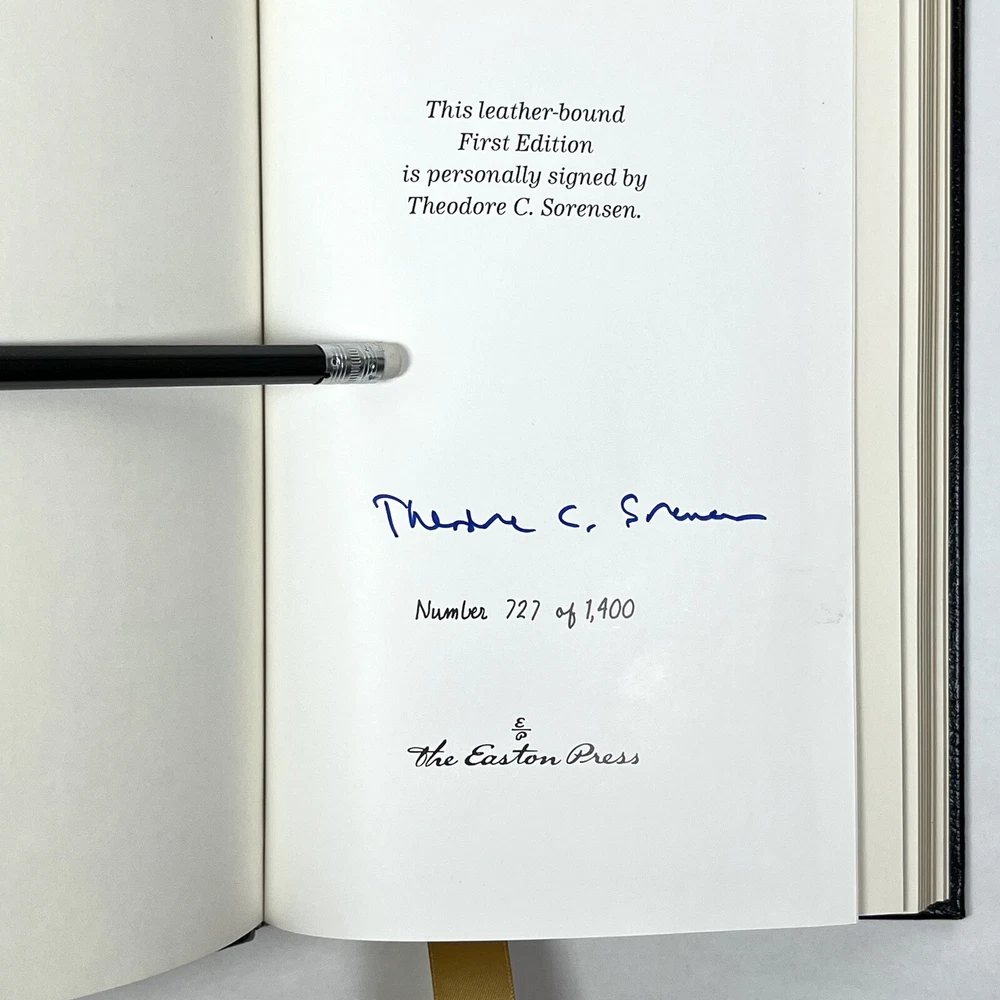 This leather-bound
First Edition
is personally signed by
Theodore C. Sorensen.
Theodore C. Sorensen
Number 727 of 1,400
E/P
the Easton Press